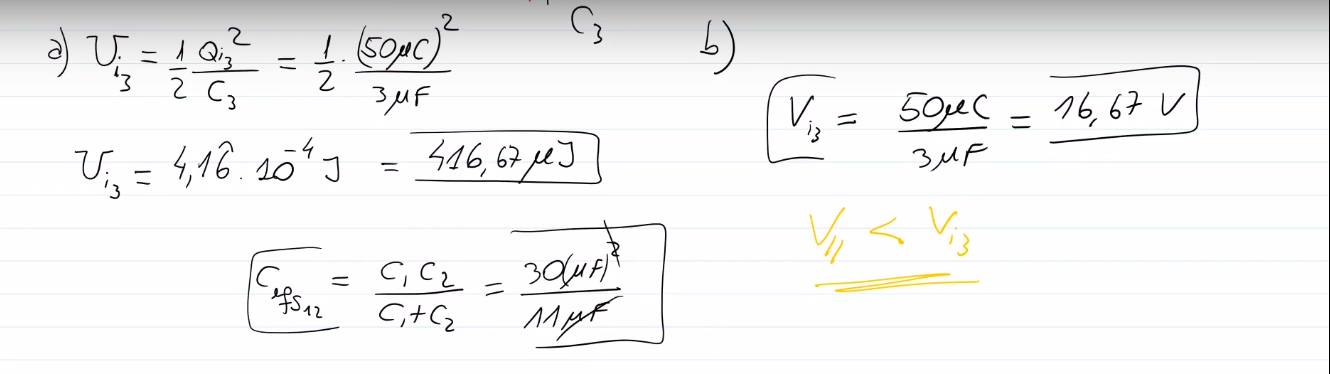 C₃
a) U_i₃ = 1/2 Q_i₃²/C₃ = 1/2 · (50μC)²/3μF
U_i₃ = 4,16̂ · 10⁻⁴ J = 416,67 μJ
C_efs₁₂ = C₁C₂/(C₁+C₂) = 30(μF)²/11μF
b)
V_i₃ = 50μC/3μF = 16,67 V
V_// < V_i₃